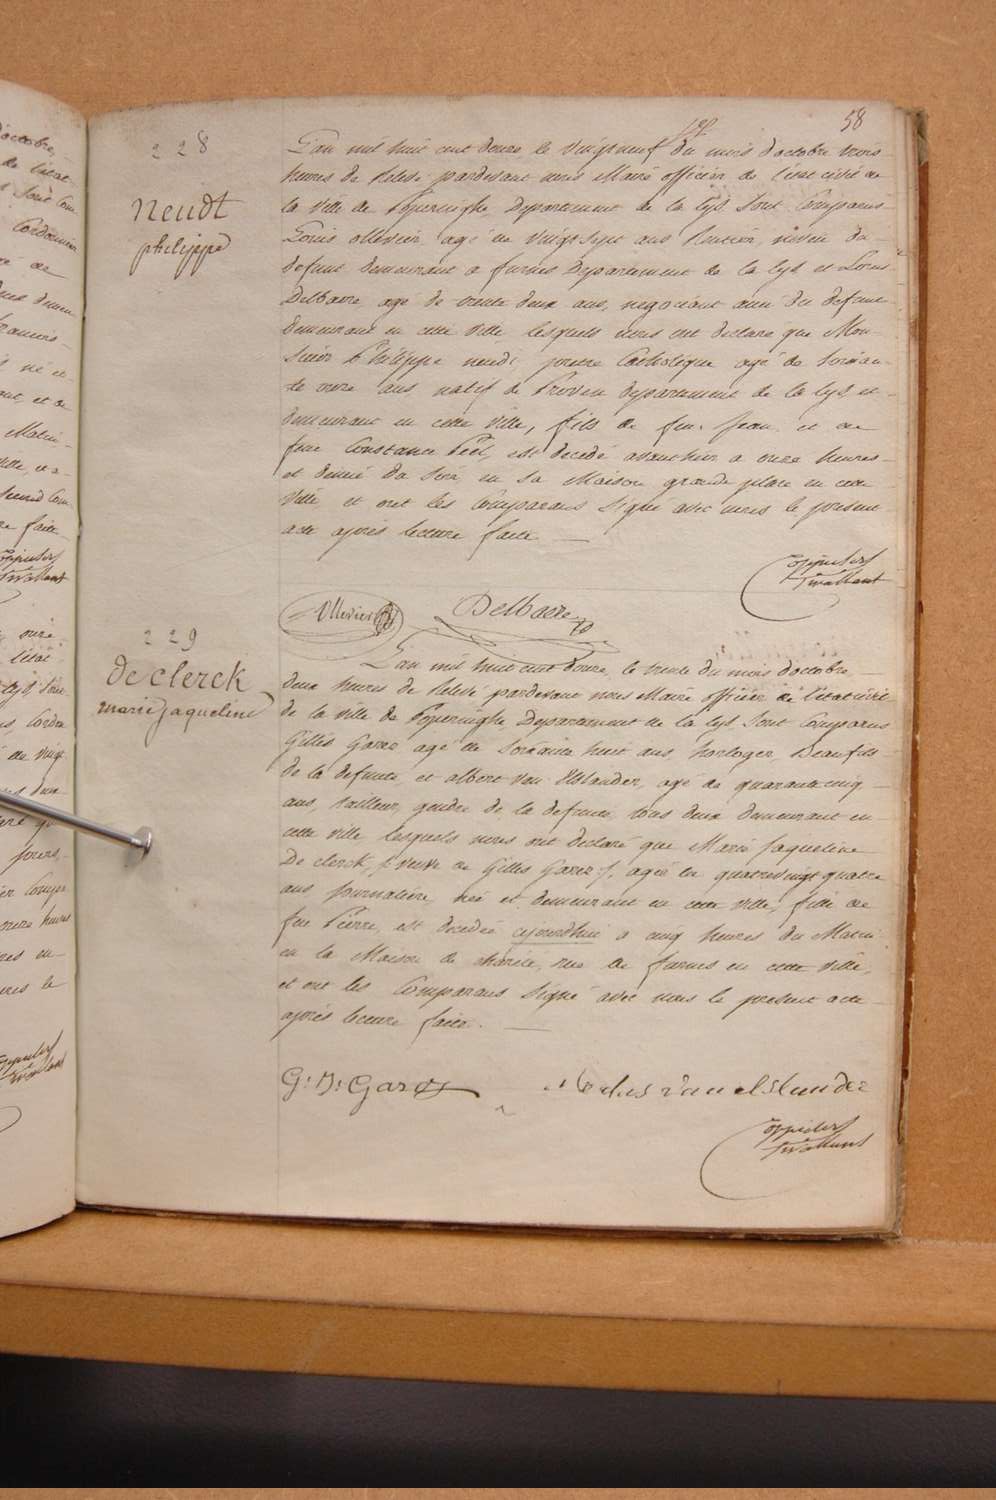 58
228
neudt
philippe
L'an mil huit cent douze, le vingtneuf du mois d'octobre trois
heures de relevé pardevant nous Maire officier de l'état civil de
la ville de Poperinghe Departement de la Lys Sont Comparus
Louis ollevier, agé de vingt sept ans Rentier, neveu du
defunt demeurant a furnes Departement de la Lys et Louis
Delbaere agé de trente deux ans, negociant ami du defunt
demeurant en cette ville lesquels nous ont declaré que Mon-
sieur Philippe neudt pretre Catholique agé de soixan-
te onze ans natif de Proven departement de la Lys et
demeurant en cette ville, fils de feu Jean et de
feue Constance Peel, est decedé avanthier a onze heures
et demié du soir en sa Maison grande place en cette
ville et ont les Comparans Signé avec nous le present
acte après lecture faite.
Ollevier
Delbaere
229
de clerck
marie jaqueline
L'an mil huit cent douze, le trente du mois d'octobre
deux heures de relevé pardevant nous Maire officier de l'état civil
de la ville de Poperinghe, Departement de la Lys Sont Comparus
Gilles Garez agé de soixante huit ans, horloger, Beaufils
de la defunte, et albert van Elslander, agé de quarante cinq
ans, tailleur, gendre de la defunte, tous deux demeurant en
cette ville lesquels nous ont declaré que Marie Jaqueline
De clerck, veuve de Gilles Garez, agée de quatrevingt quatre
ans Journalière, née et demeurant en cette ville, fille de
feu Pierre, est decedée cejourdhui a cinq heures du Matin
en la Maison de charité, rue de furnes en cette ville,
et ont les Comparans Signé avec nous le present acte
après lecture faite.
G: J: Garez
van elslander